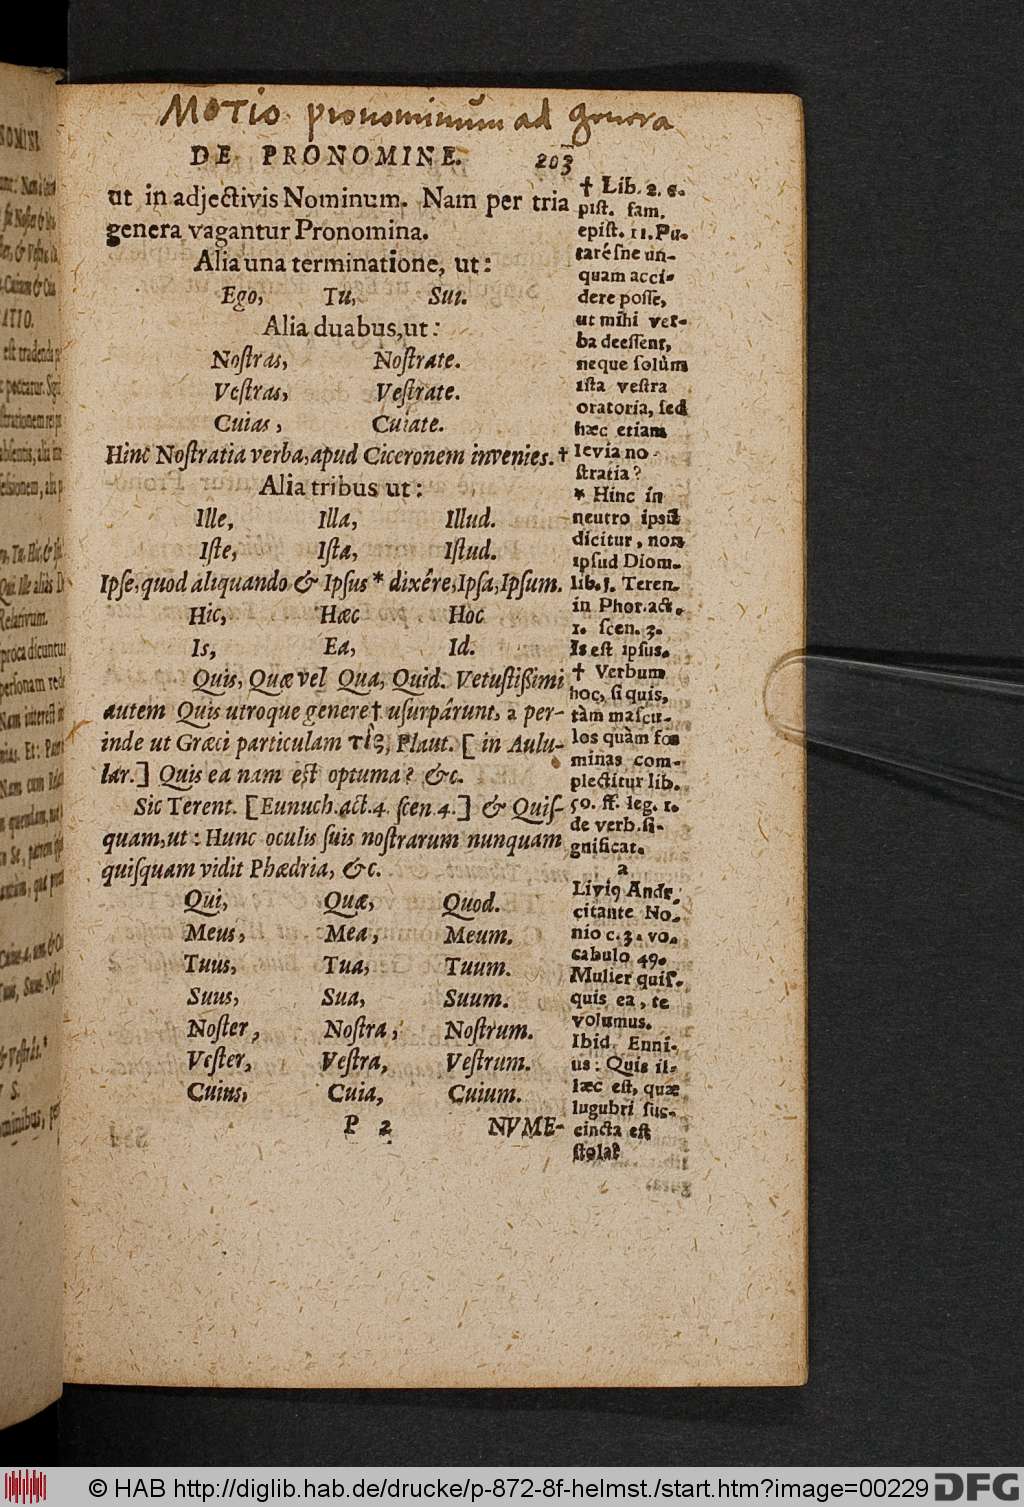 Motio pronominum ad genera
DE PRONOMINE. 203
ut in adjectivis Nominum. Nam per tria
genera vagantur Pronomina.
Alia una terminatione, ut:
Ego, Tu, Sui.
Alia duabus, ut:
Noſtras, Noſtrate.
Veſtras, Veſtrate.
Cuias, Cuiate.
Hinc Noſtratia verba, apud Ciceronem invenies.†
Alia tribus ut:
Ille, Illa, Illud.
Iſte, Iſta, Iſtud.
Ipſe, quod aliquando & Ipſus * dixêre, Ipſa, Ipſum.
Hic, Hæc Hoc
Is, Ea, Id.
Quis, Quæ vel Qua, Quid. Vetuſtiſſimi
autem Quis utroque genere† uſurpârunt, a per-
inde ut Græci particulam τὶς, Plaut. [in Aulu-
lar.] Quis ea nam eſt optuma? &c.
Sic Terent. [Eunuch. act. 4. ſcen. 4.] & Quiſ-
quam, ut: Hunc oculis ſuis noſtrarum nunquam
quiſquam vidit Phædria, &c.
Qui, Quæ, Quod.
Meus, Mea, Meum.
Tuus, Tua, Tuum.
Suus, Sua, Suum.
Noſter, Noſtra, Noſtrum.
Veſter, Veſtra, Veſtrum.
Cuius, Cuia, Cuium.
P 2 NVME-
† Lib. 2. e-
piſt. fam.
epiſt. 11. Pu-
taréſne un-
quam acci-
dere poſſe,
ut mihi ver-
ba deeſſent,
neque ſolùm
iſta veſtra
oratoria, ſed
hæc etiam
levia no-
ſtratia?
* Hinc in
neutro ipsũ
dicitur, non
ipſud Diom.
lib. 1. Teren.
in Phor. act.
1. ſcen. 3.
Is eſt ipſus.
† Verbum
hoc, ſi quis,
tàm maſcu-
los quàm fœ
minas com-
plectitur lib.
50. ff. leg. 1.
de verb. ſi-
gnificat.
a
Liviꝰ Andr.
citante No-
nio c. 3. vo-
cabulo 49.
Mulier quiſ-
quis ea, te
volumus.
Ibid. Enni-
us: Quis il-
læc eſt, quæ
lugubri ſuc-
cincta eſt
ſtola?
© HAB http://diglib.hab.de/drucke/p-872-8f-helmst./start.htm?image=00229 DFG